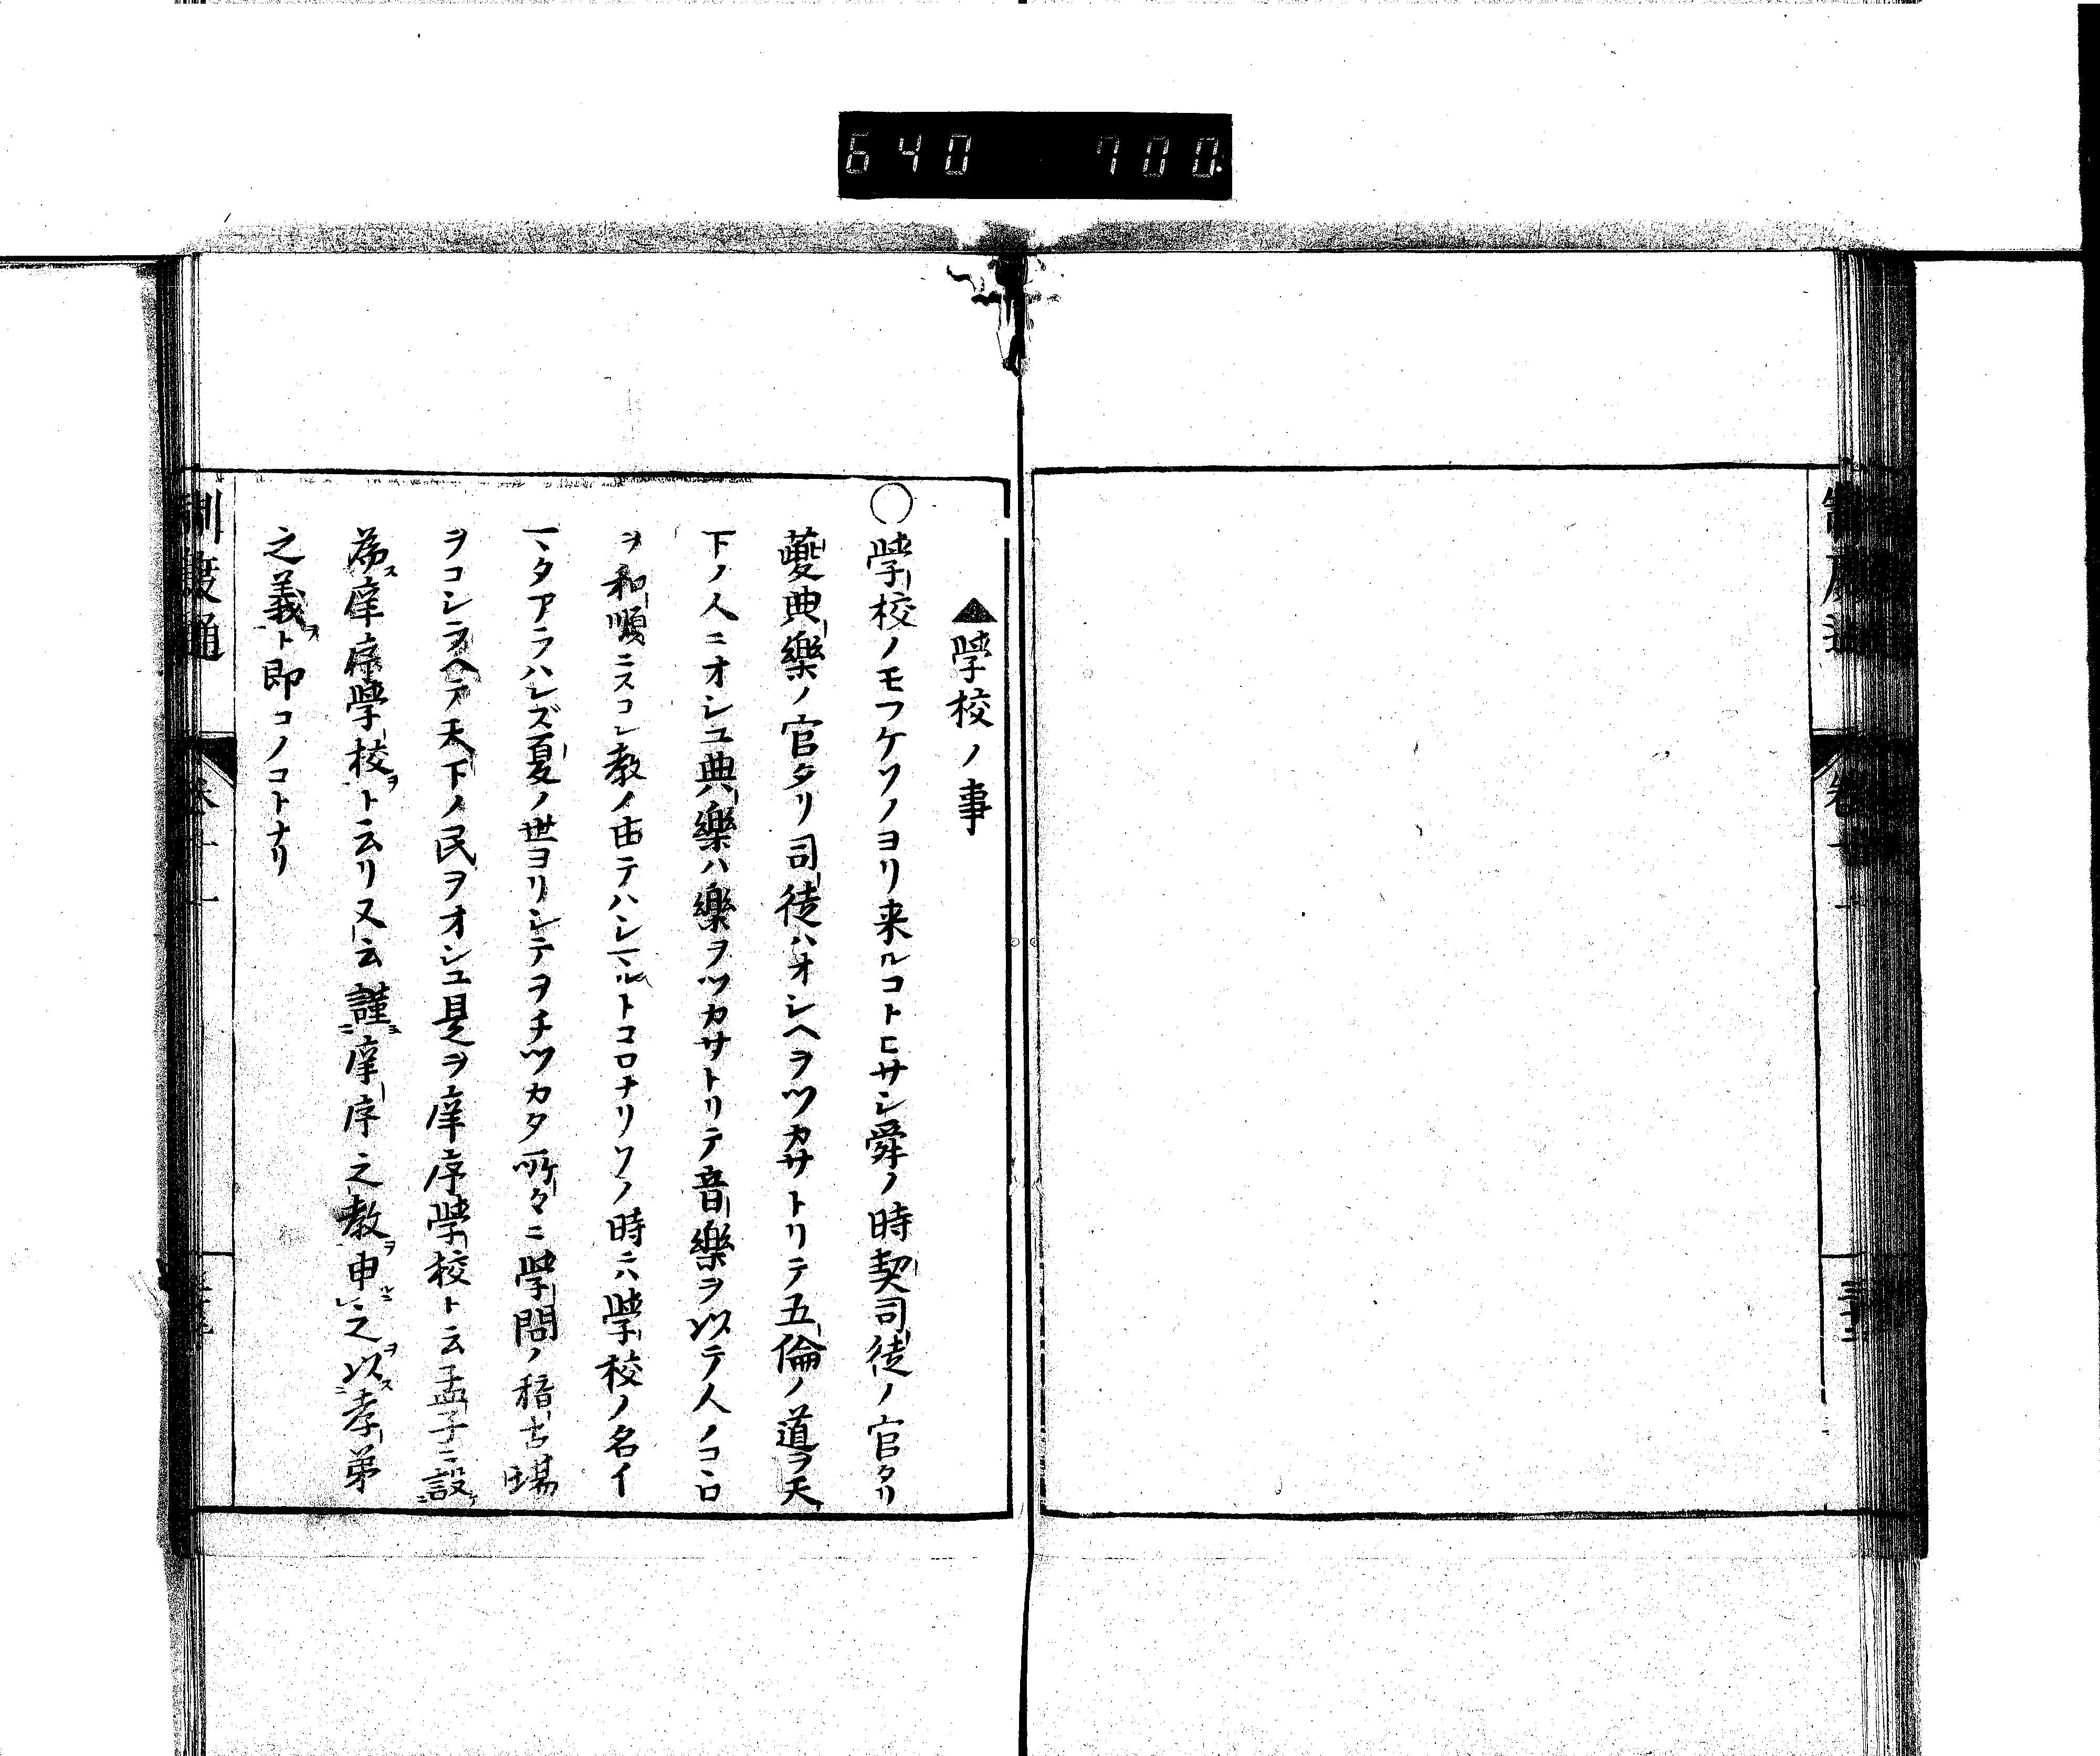 640 700.
▲學校ノ事
○學校ノモフケソノヨリ来ルコトヒサシ舜ノ時契司徒ノ官タリ
夔典樂ノ官タリ司徒ハオシヘヲツカサトリテ五倫ノ道ヲ天
下ノ人ニオシユ典樂ハ樂ヲツカサトリテ音樂ヲ以テ人ノコヽロ
ヲ和順ニスコレ教ノ由テハシマルトコロナリソノ時ニハ學校ノ名イ
マタアラハレズ夏ノ世ヨリシテヲチツカタ所々ニ學問ノ稽古場
ヲコシラヘテ天下ノ民ヲオシユ是ヲ庠序學校ト云孟子ニ設
為庠序學校ト云リ又云謹庠序之教申之以孝弟
之義ト即コノコトナリ
制度通 卷十一